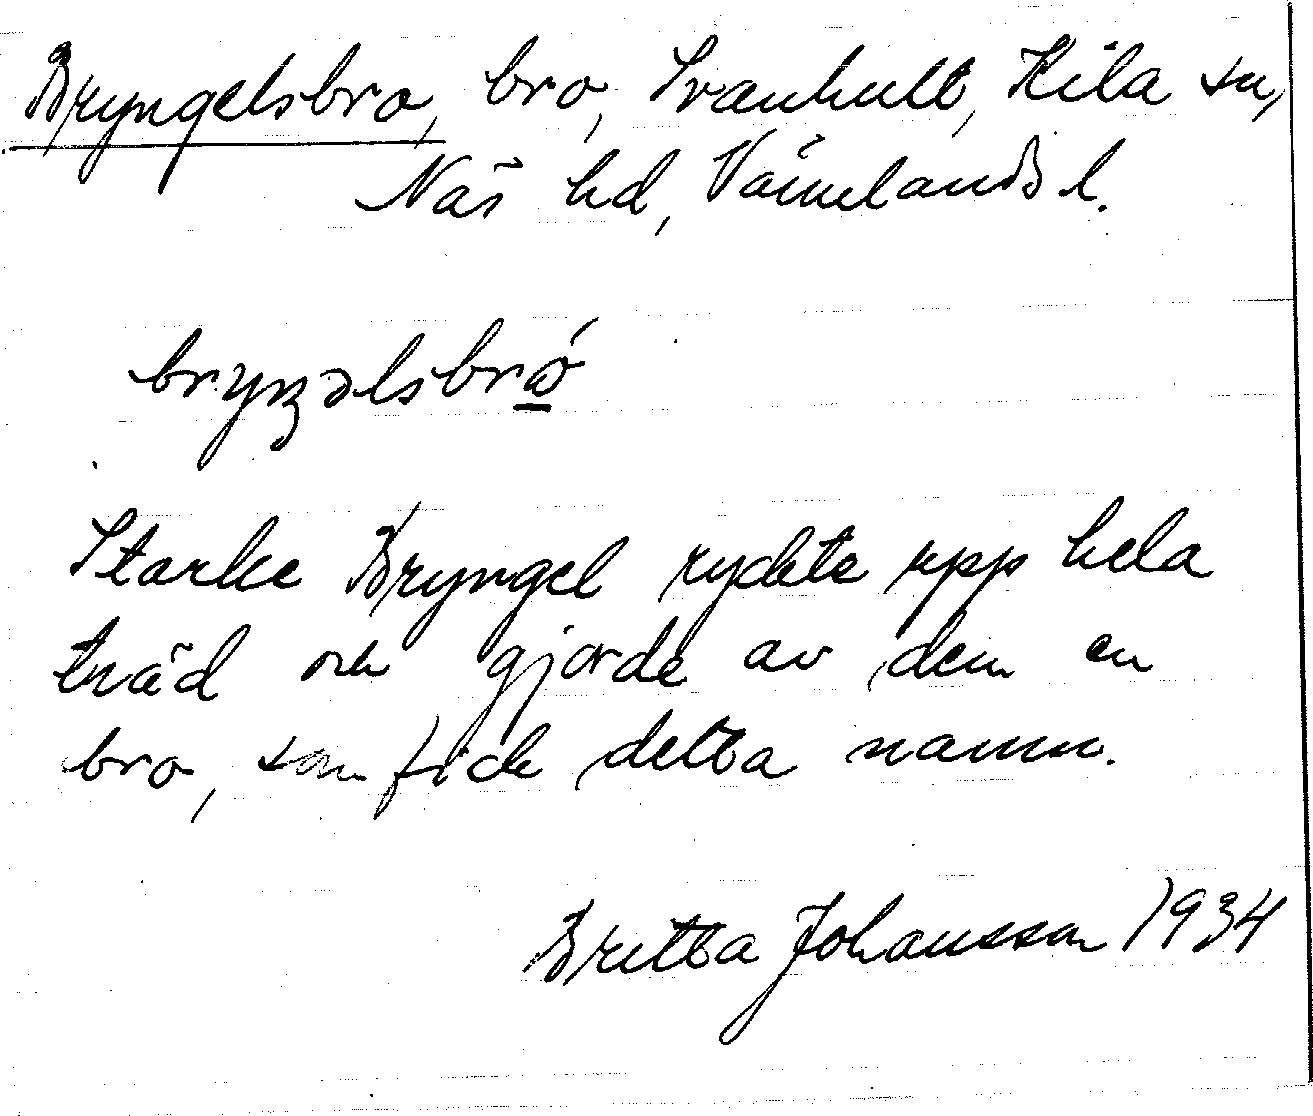 Bryngelsbro, bro, Svanhult, Kila sn,
Näs hd, Värmlands l.
bryŋəlsbró̱
Starke Bryngel ryckte upp hela
träd och gjorde av dem en
bro, som fick detta namn.
Britta Johansson 1934